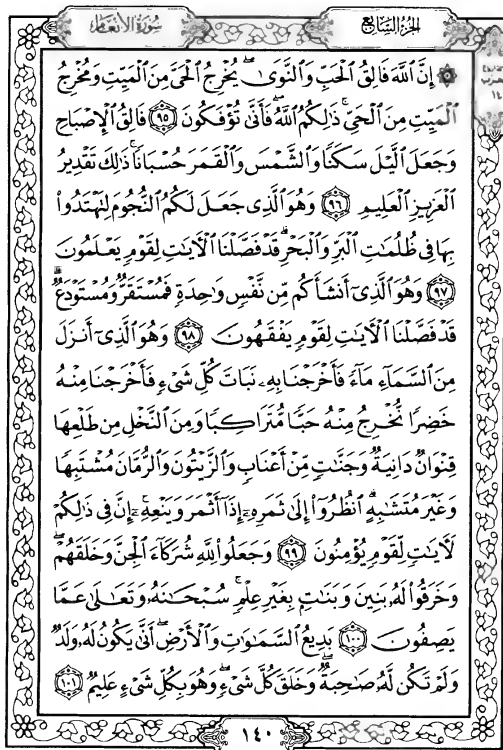 الجزء السابع
سورة الأنعام
۞ إِنَّ اللَّهَ فَالِقُ الْحَبِّ وَالنَّوَىٰ ۖ يُخْرِجُ الْحَيَّ مِنَ الْمَيِّتِ وَمُخْرِجُ
الْمَيِّتِ مِنَ الْحَيِّ ۚ ذَٰلِكُمُ اللَّهُ ۖ فَأَنَّىٰ تُؤْفَكُونَ ٩٥ فَالِقُ الْإِصْبَاحِ
وَجَعَلَ الَّيْلَ سَكَنًا وَالشَّمْسَ وَالْقَمَرَ حُسْبَانًا ۚ ذَٰلِكَ تَقْدِيرُ
الْعَزِيزِ الْعَلِيمِ ٩٦ وَهُوَ الَّذِي جَعَلَ لَكُمُ النُّجُومَ لِتَهْتَدُوا
بِهَا فِي ظُلُمَاتِ الْبَرِّ وَالْبَحْرِ ۗ قَدْ فَصَّلْنَا الْآيَاتِ لِقَوْمٍ يَعْلَمُونَ
٩٧ وَهُوَ الَّذِي أَنشَأَكُم مِّن نَّفْسٍ وَاحِدَةٍ فَمُسْتَقَرٌّ وَمُسْتَوْدَعٌ ۗ
قَدْ فَصَّلْنَا الْآيَاتِ لِقَوْمٍ يَفْقَهُونَ ٩٨ وَهُوَ الَّذِي أَنزَلَ
مِنَ السَّمَاءِ مَاءً فَأَخْرَجْنَا بِهِ نَبَاتَ كُلِّ شَيْءٍ فَأَخْرَجْنَا مِنْهُ
خَضِرًا نُّخْرِجُ مِنْهُ حَبًّا مُّتَرَاكِبًا وَمِنَ النَّخْلِ مِن طَلْعِهَا
قِنْوَانٌ دَانِيَةٌ وَجَنَّاتٍ مِّنْ أَعْنَابٍ وَالزَّيْتُونَ وَالرُّمَّانَ مُشْتَبِهًا
وَغَيْرَ مُتَشَابِهٍ ۗ انظُرُوا إِلَىٰ ثَمَرِهِ إِذَا أَثْمَرَ وَيَنْعِهِ ۚ إِنَّ فِي ذَٰلِكُمْ
لَآيَاتٍ لِّقَوْمٍ يُؤْمِنُونَ ٩٩ وَجَعَلُوا لِلَّهِ شُرَكَاءَ الْجِنَّ وَخَلَقَهُمْ ۖ
وَخَرَقُوا لَهُ بَنِينَ وَبَنَاتٍ بِغَيْرِ عِلْمٍ ۚ سُبْحَانَهُ وَتَعَالَىٰ عَمَّا
يَصِفُونَ ١٠٠ بَدِيعُ السَّمَاوَاتِ وَالْأَرْضِ ۖ أَنَّىٰ يَكُونُ لَهُ وَلَدٌ
وَلَمْ تَكُن لَّهُ صَاحِبَةٌ ۖ وَخَلَقَ كُلَّ شَيْءٍ ۖ وَهُوَ بِكُلِّ شَيْءٍ عَلِيمٌ ١٠١
١٤٠